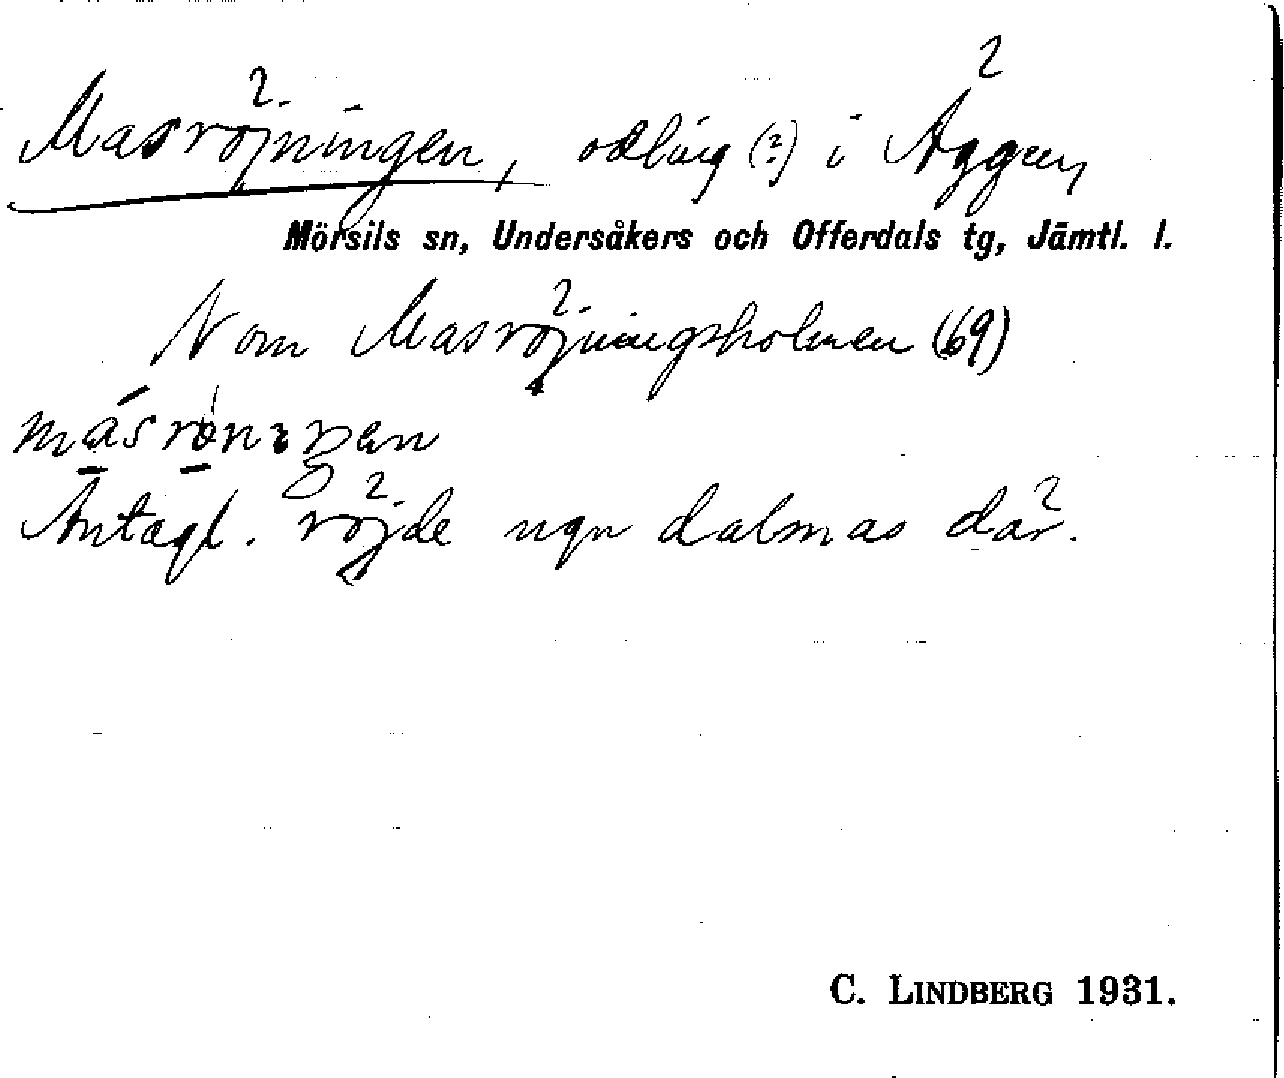 Masröjningen, odling (?) i Äggen,
Mörsils sn, Undersåkers och Offerdals tg, Jämtl. l.
N om Masröjningsholmen (69)
Antagl. röjde ngn dalmas där.
C. LINDBERG 1931.